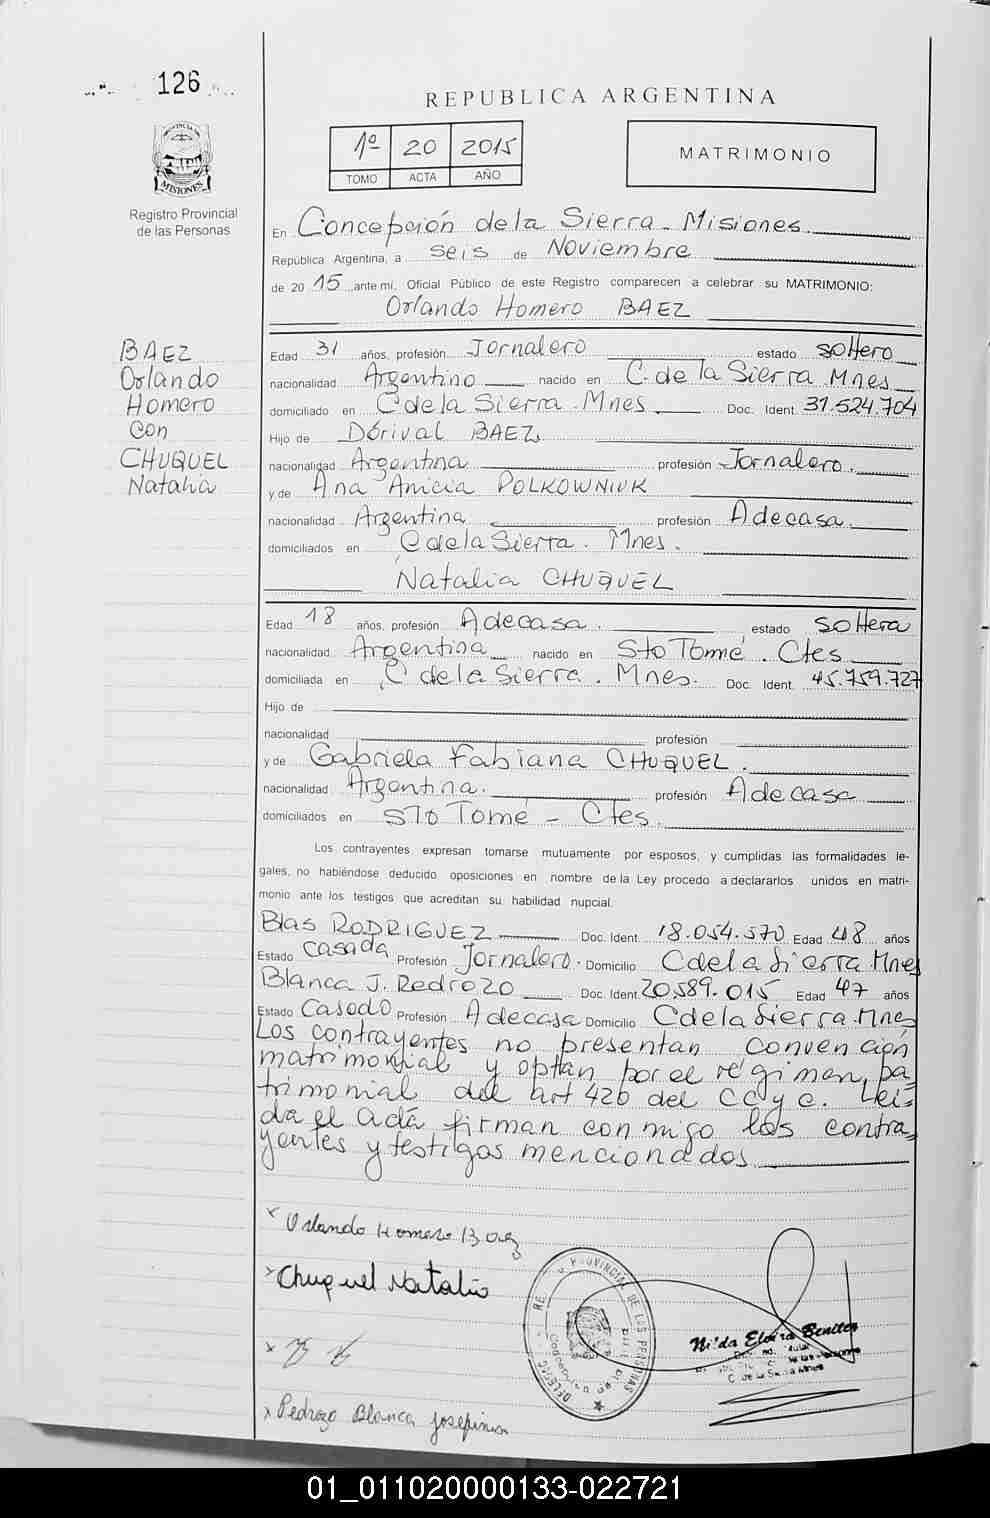 126
REPUBLICA ARGENTINA
1º 20 2015
TOMO ACTA AÑO
MATRIMONIO
PROVINCIA DE
MISIONES
Registro Provincial
de las Personas
En Concepción de la Sierra. Misiones.
República Argentina, a seis de Noviembre
de 20 15 ante mí, Oficial Público de este Registro comparecen a celebrar su MATRIMONIO:
Orlando Homero BAEZ
BAEZ
Orlando
Homero
con
CHUQUEL
Natalia
Edad 31 años, profesión Jornalero estado soltero
nacionalidad Argentino nacido en C. de la Sierra Mnes
domiciliado en C de la Sierra. Mnes. Doc. Ident. 31.524.704
Hijo de Dórival BAEZ
nacionalidad Argentina profesión Jornalero.
y de Ana Anicia POLKOWNIUK
nacionalidad Argentina profesión Adecasa.
domiciliados en C de la Sierra. Mnes.
Natalia CHUQUEL
Edad 18 años, profesión Adecasa. estado soltera
nacionalidad Argentina nacido en Sto Tomé. Ctes
domiciliada en C de la Sierra. Mnes. Doc. Ident. 45.759.727
Hijo de
nacionalidad profesión
y de Gabriela Fabiana CHUQUEL.
nacionalidad Argentina. profesión Adecasa
domiciliados en STo Tomé - Ctes.
Los contrayentes expresan tomarse mutuamente por esposos, y cumplidas las formalidades le-
gales, no habiéndose deducido oposiciones en nombre de la Ley procedo a declararlos unidos en matri-
monio ante los testigos que acreditan su habilidad nupcial.
Blas RODRIGUEZ Doc. Ident. 18.054.570 Edad 48 años
Estado casada Profesión Jornalero. Domicilio C de la Sierra Mnes
Blanca J. Pedrozo Doc. Ident. 20.589.015 Edad 47 años
Estado Casado Profesión Adecasa Domicilio C de la Sierra. Mnes
Los contrayentes no presentan convención
matrimonial y optan por el régimen pa-
trimonial del art 420 del CC y C. Leí-
da el acta firman conmigo los contra-
yentes y testigos mencionados
x Orlando Homero Baez
x Chuquel Natalia
x
x Pedrozo Blanca Josefina
PROVINCIAL DE LAS PERSONAS
Nilda Elvira Benitez
C. de la Sierra Mnes
01_011020000133-022721